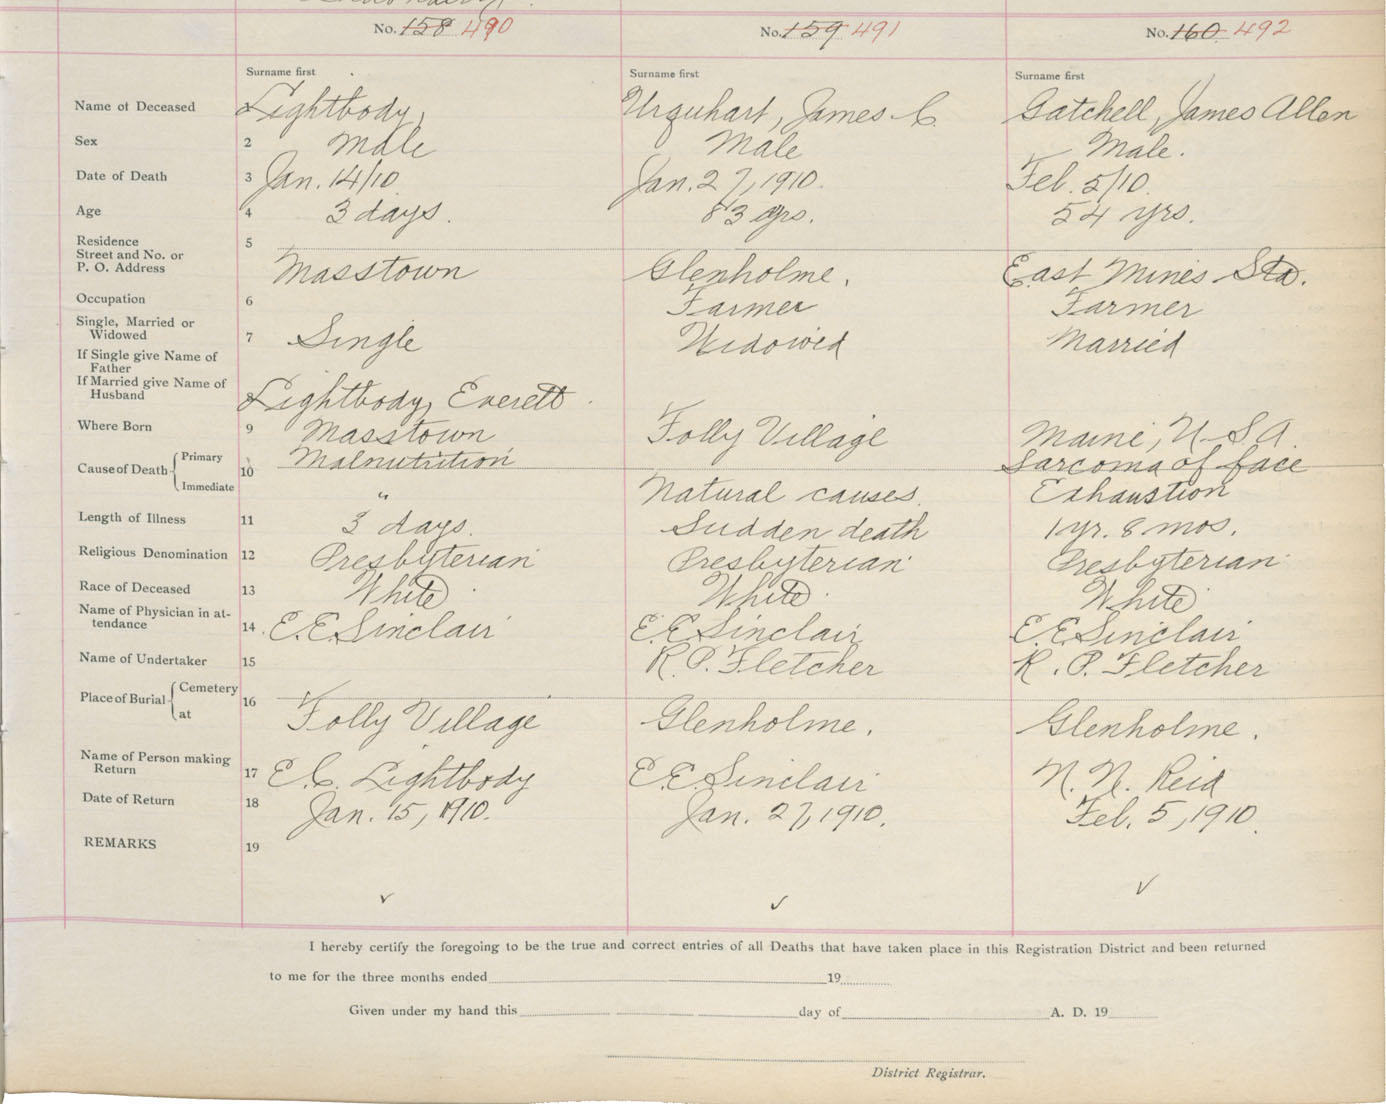 No. 158 490 No. 159 491 No. 160 492
Surname first Surname first Surname first
Name of Deceased Lightbody, Urquhart, James C. Gatchell, James Allen
Sex 2 Male Male Male.
Date of Death 3 Jan. 14/10. Jan. 27, 1910. Feb. 5/10.
Age 4 3 days. 83 yrs. 54 yrs.
Residence 5
Street and No. or
P. O. Address Masstown Glenholme. East Mines Sta.
Occupation 6 Farmer Farmer
Single, Married or
Widowed 7 Single Widowed Married
If Single give Name of
Father
If Married give Name of
Husband 8 Lightbody, Everett.
Where Born 9 Masstown Folly Village Maine, U.S.A.
Cause of Death Primary 10 Malnutrition Sarcoma of face
Immediate " Natural causes. Exhaustion
Length of Illness 11 3 days. Sudden death 1 yr. 8 mos.
Religious Denomination 12 Presbyterian Presbyterian Presbyterian
Race of Deceased 13 White. White. White
Name of Physician in at-
tendance 14 E. E. Sinclair E. E. Sinclair E. E. Sinclair
Name of Undertaker 15 R. P. Fletcher R. P. Fletcher
Place of Burial Cemetery 16
at Folly Village Glenholme. Glenholme.
Name of Person making
Return 17 E. C. Lightbody E. E. Sinclair N. N. Reid
Date of Return 18 Jan. 15, 1910. Jan. 27, 1910. Feb. 5, 1910.
REMARKS 19
✓ ✓ ✓
I hereby certify the foregoing to be the true and correct entries of all Deaths that have taken place in this Registration District and been returned
to me for the three months ended 19
Given under my hand this day of A. D. 19
District Registrar.